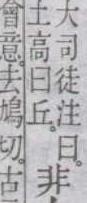 大司徒注曰。
土高曰丘。
非
會意。去鳩切。古